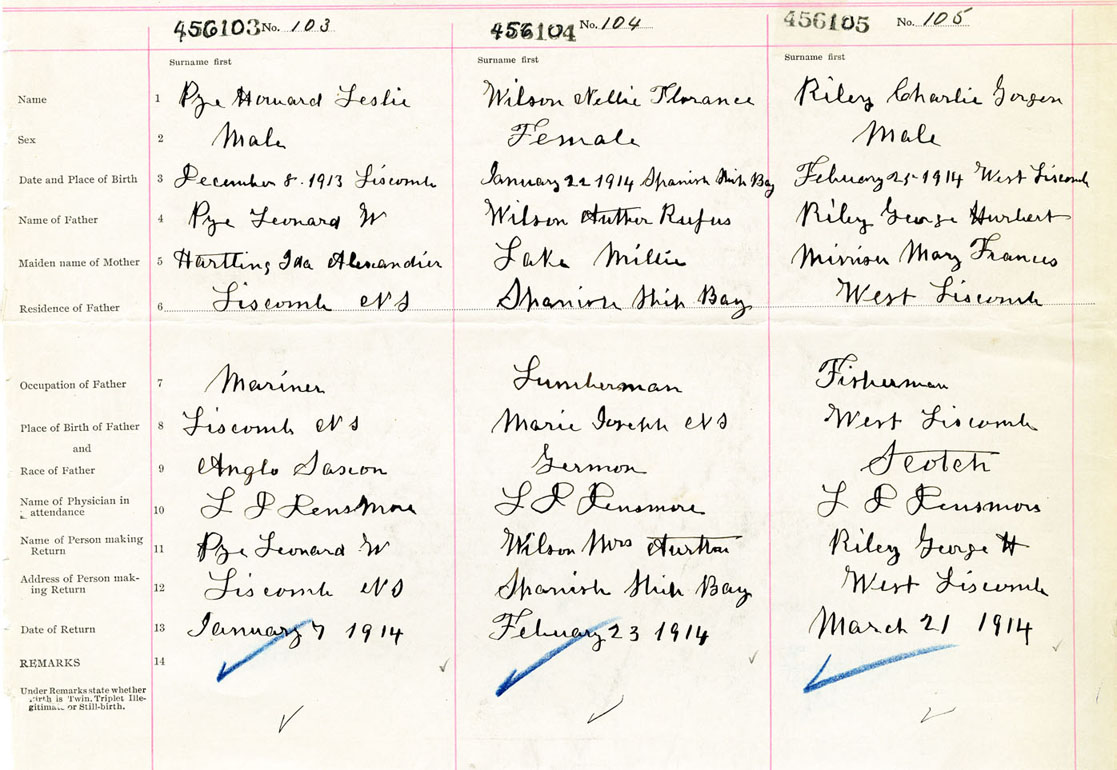 456103 No. 103 456104 No. 104 456105 No. 105
Surname first Surname first Surname first
Name 1 Pye Howard Leslie Wilson Nellie Florance Riley Charlie Gorgen
Sex 2 Male Female Male
Date and Place of Birth 3 December 8. 1913 Liscomb January 22 1914 Spanish Ship Bay February 25 1914 West Liscomb
Name of Father 4 Pye Leonard W Wilson Auther Rufus Riley George Hurbert
Maiden name of Mother 5 Hartling Ida Alexandier Lake Millie Mary Frances
Residence of Father 6 Liscomb NS Spanish Ship Bay West Liscomb
Occupation of Father 7 Mariner Lumberman Fisherman
Place of Birth of Father 8 Liscomb NS Marie Joseph NS West Liscomb
and
Race of Father 9 Anglo Saxon Germon Scotch
Name of Physician in
attendance 10 L P Densmore L P Densmore L P Densmore
Name of Person making
Return 11 Pye Leonard W Wilson Mrs Riley George H
Address of Person mak-
ing Return 12 Liscomb NS Spanish Ship Bay West Liscomb
Date of Return 13 January 7 1914 February 23 1914 March 21 1914
REMARKS 14
Under Remarks state whether
birth is Twin, Triplet Ille-
gitimate or Still-birth.